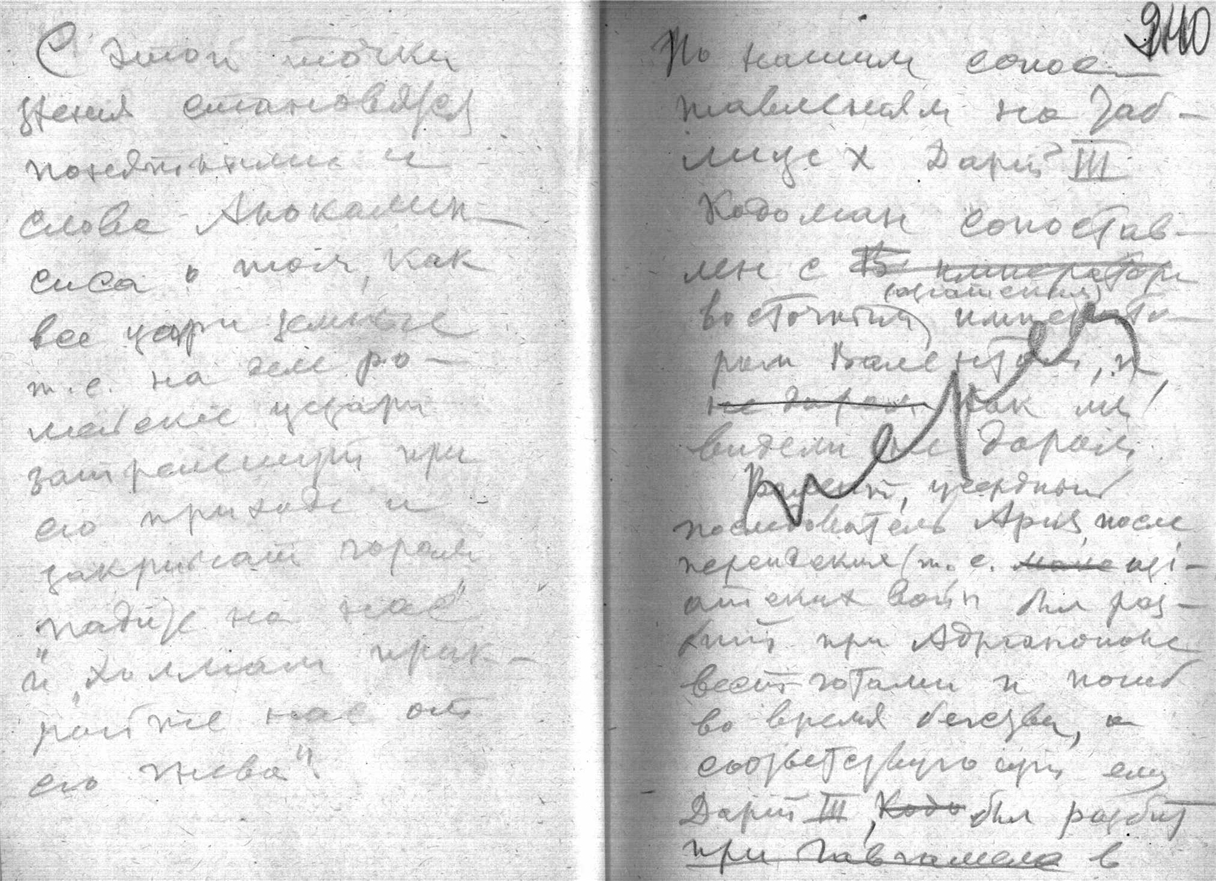 С этой точки
зрения становятся
понятными и
слова Апокалип-
сиса о том, как
все цари земные
т.е. на деле ро-
мейские цезари
затрепещут при
его приходе и
закричат горам
„падите на нас"
и „холмам прик-
ройте нас от
его гнева".
240
По нашим сопос-
тавлениям на Таб-
лице X Дарий III
Кодоман сопостав-
лен с императори
восточным импера-
ром Валентом, и
не даром как мы
видели не даром.
Валент, усердный
последователь Ария, после
персидских (т.е. ази-
атских войн был раз-
бит при Адрианополе
вестготами и погиб
во время бегства, а
соответствующий ему
Дарий III, Кодо был разбит
при Гавгамела в